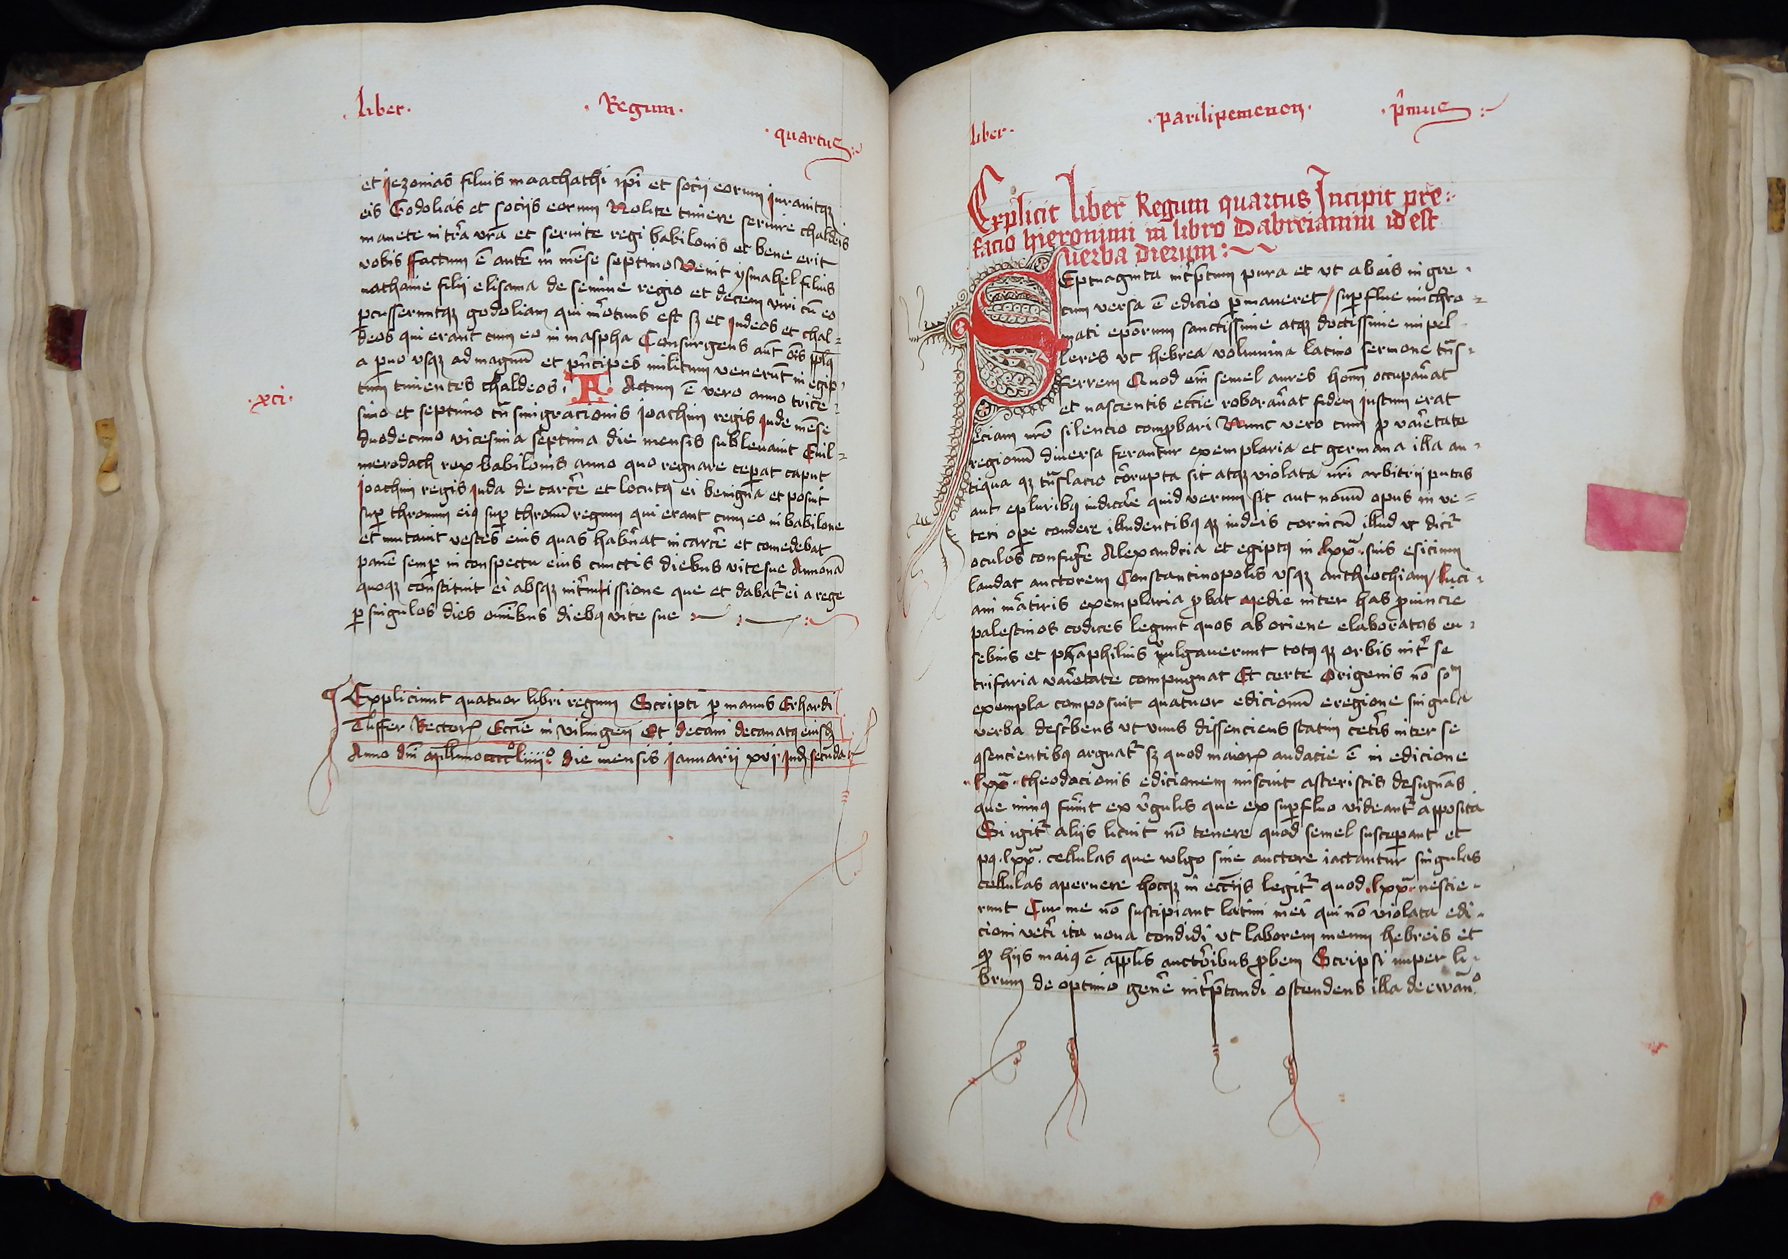 liber · Regum · quartus
et Jezonias filius maachathi ipi et socii eorum Juravitq
eis Godolias et sociis eorum Nolite timere servire chaldeis
manete in tra vra et servite regi babilonis et bene erit
vobis ffactum e aute in mese septimo Venit ysmahel filius
nathanie filii elisama de semine regio et decem viri cu eo
pcusseruntq godoliam qui mortuus est sz et Judeos et chal=
deos qui erant cum eo in maspha Consurgens aut ois pplus
a puo usq ad magnu et pncipes militum venerut in egip
tum timentes chaldeos FActum e vero anno trice
simo et septimo tnsmigracionis Joachim regis Jude mese
·xci·
duodecimo vicesima septima die mensis sublevavit Evil=
merodach rex babilonis anno quo regnare ceperat caput
Joachim regis Juda de carcere et locutq ei benigna et posuit
sup thronum eiq sup thronu regum qui erant cum eo in babilone
et mutavit vestes eius quas habuat in carcere et comedebat
pane semp in conspectu eius cunctis diebus vite sue Annona
quoq constituit ei absq intmissione que et dabatr ei a rege
p singulos dies omibus diebq vite sue
Expliciunt quatuor libri regum Scripti p manus Erhardi
Tusser Rectorz Eccie in vilingen Et decani decanatq eiusdz
Anno dni millimocccc°liiii° die mensis Januarii xvi Indz secunda
liber · parilipemenon · pmus
Explicit liber Regum quartus Incipit pre=
facio hieronimi in libro Dabreiamin id est
verba dierum:
SEptuaginta intptum pura et ut ab eis in gre
cum versa e edicio pmaneret / supflue mi chro=
mati eporum sanctissime atq doctissime inpel
leres ut hebrea volumina latino sermone tns=
ferrem Quod eni semel aures homi occupavat
et nascentis eccie roboravat fidem Justum erat
eciam nro silencio compbari Nunc vero cum p varietate
regionu diversa ferantur exemplaria et germana illa an
tiqua qz tnslacio corrupta sit atqz violata nri arbitrii putas
aut e pluribq indicare quid verum sit aut novum opus in ve=
teri ope condere illudentibq qz iudeis cornicu illud ut dicr
oculos confugre Alexandria et egiptq in lxx suis esicium
laudat auctorem Constantinopolis usqz anthiochiam / luci
ani matiris exemplaria pbat Medie inter has pvincie
palestinos codices legunt quos ab oriene elaboratos eu
sebius et phaphilius vulgaverunt totq qz orbis int se
trifaria varietate compugnat Et certe Origenis no som
exempla composuit quatuor edicionu e regione singula
verba describens ut unus dissenciens statim ceteris inter se
qsencientibq arguatr sz quod maiorz audacie e in edicione
lxx theodocionis edicionem miscuit asteriscis designans
que minq funt ex virgulis que ex supfluo videantr apposita
Si igitr aliis licuit no tenere quod semel susceperant et
pq lxx cellulas que vulgo sine auctore iactantur singulas
cellulas aperuere hocqz in ecciis legitr quod lxx nescie
runt Cur me no suscipiant latini mei qui no violata edi
cioni veteri ita nova condidi ut laborem meum hebreis et
qz hiis maiq e applis auctoribus pbem Scripsi nuper li
brum de optimo genere intptandi ostendens illa de ewan°